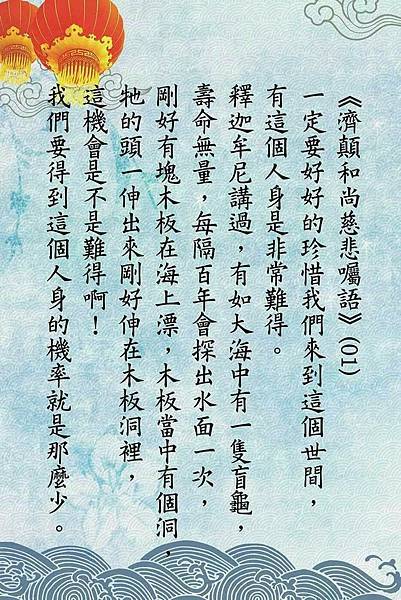 《濟顛和尚慈悲囑語》(01)
一定要好好的珍惜我們來到這個世間，
有這個人身是非常難得。
釋迦牟尼講過，有如大海中有一隻盲龜，
壽命無量，每隔百年會探出水面一次，
剛好有塊木板在海上漂，木板當中有個洞，
牠的頭一伸出來剛好伸在木板洞裡，
這機會是不是難得啊！
我們要得到這個人身的機率就是那麼少。